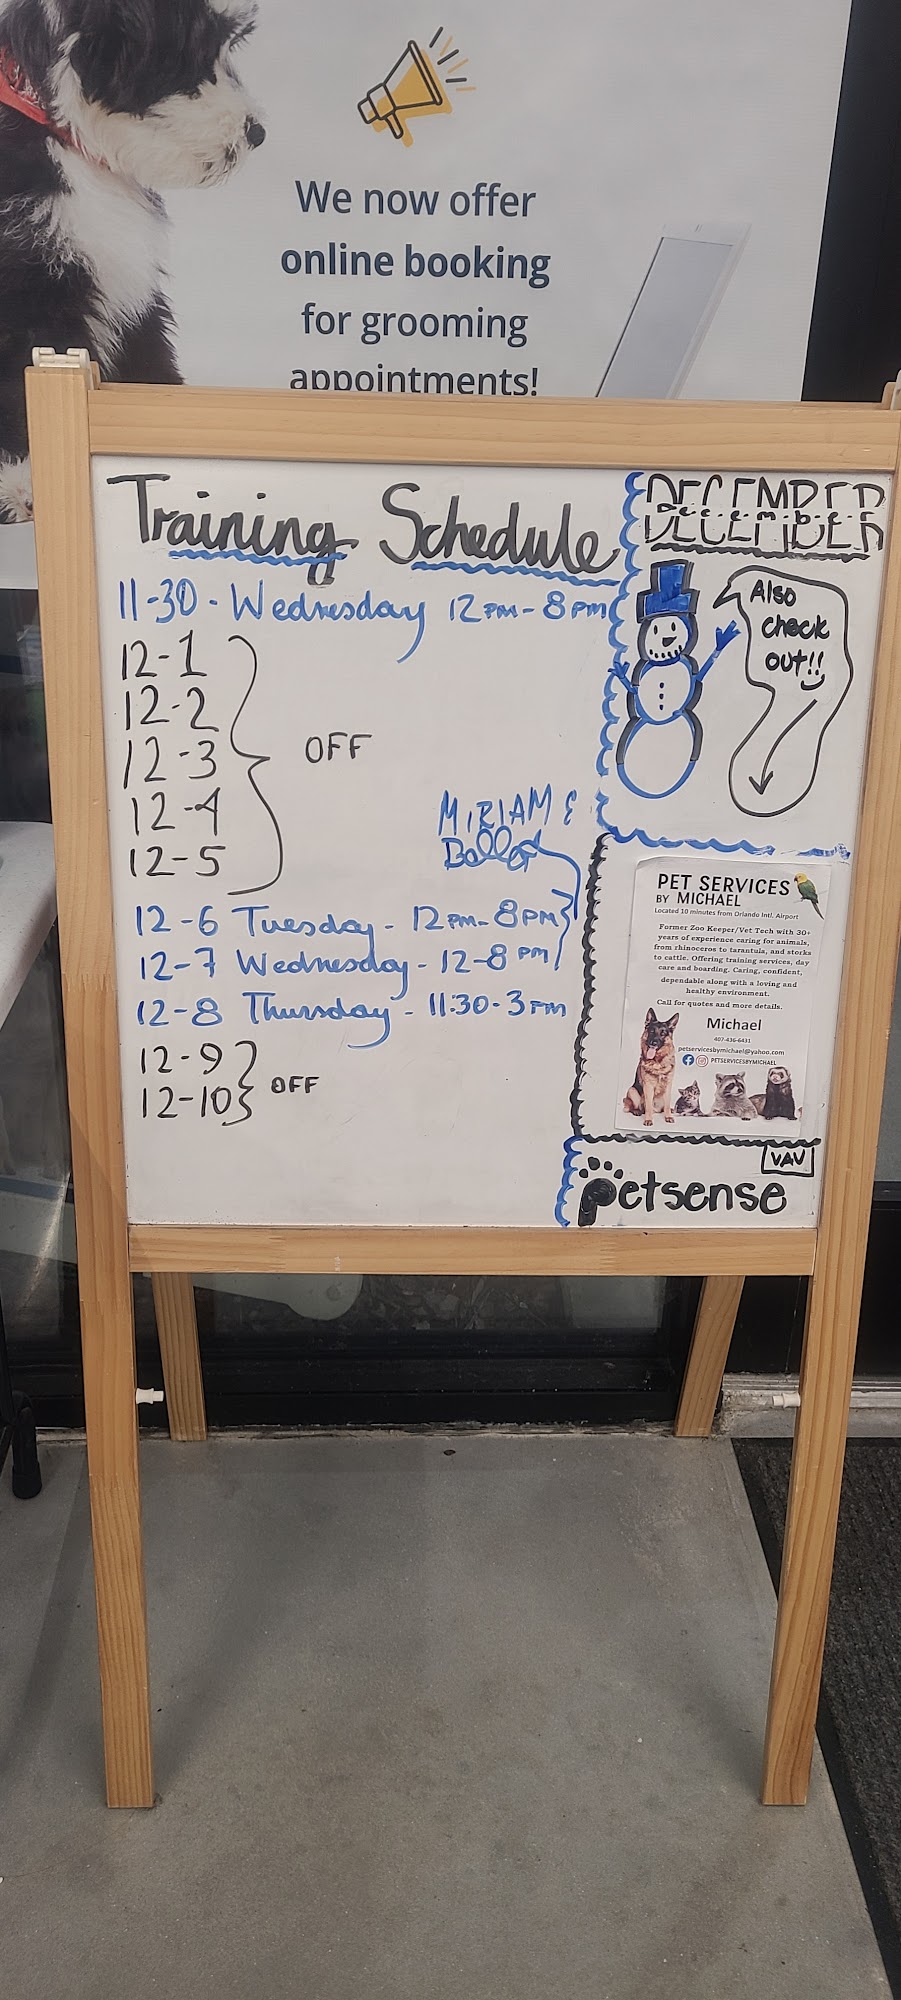 We now offer
online booking
for grooming
appointments!
Training Schedule
11-30 - Wednesday 12PM - 8PM
12-1
12-2
12-3
12-4
12-5
OFF
MIRIAM &
12-6 Tuesday - 12PM - 8PM
12-7 Wednesday - 12-8 PM
12-8 Thursday - 11:30-3PM
12-9
12-10
OFF
DECEMBER
December
Also
check
out!!
PET SERVICES
BY MICHAEL
Located 10 minutes from Orlando Intl. Airport
Former Zoo Keeper/Vet Tech with 30+
years of experience caring for animals,
from rhinoceros to tarantula, and storks
to cattle. Offering training services, day
care and boarding. Caring, confident,
dependable along with a loving and
healthy environment.
Call for quotes and more details.
Michael
407-436-6431
petservicesbymichael@yahoo.com
PETSERVICESBYMICHAEL
VAV
petsense